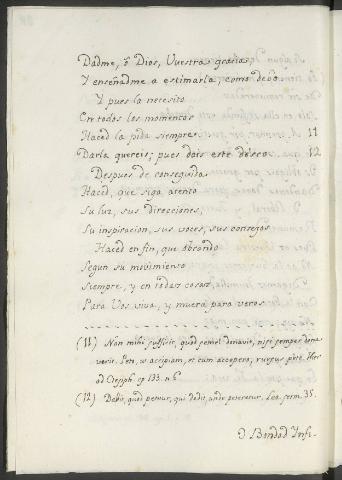 Dadme, ô Dios, Vuestra gracia,
Y enseñadme a estimarla, como debo.
Y pues la necesito
En todos los momentos
Haced la pida siempre 11
Darla quereis; pues dais este deseo. 12
Despues de conseguida
Haced, que siga atento
Su luz, sus direcciones,
Su inspiracion, sus voces, sus consejos
Haced en fin, que obrando
Segun su movimiento
Siempre, y en todas cosas,
Para Vos viva, y muera para veros
(11) Non mihi sufficit, quod semel donavit, nisi semper dona
verit. Peto, ut accipiam, et cum accepero, rursus peto. Hier
ad Ctesiph. ep 133. n 6
(12) Dabit, quod petitur, qui dedit, ut peteretur. Leo. serm. 35.
O Bondad Infi-